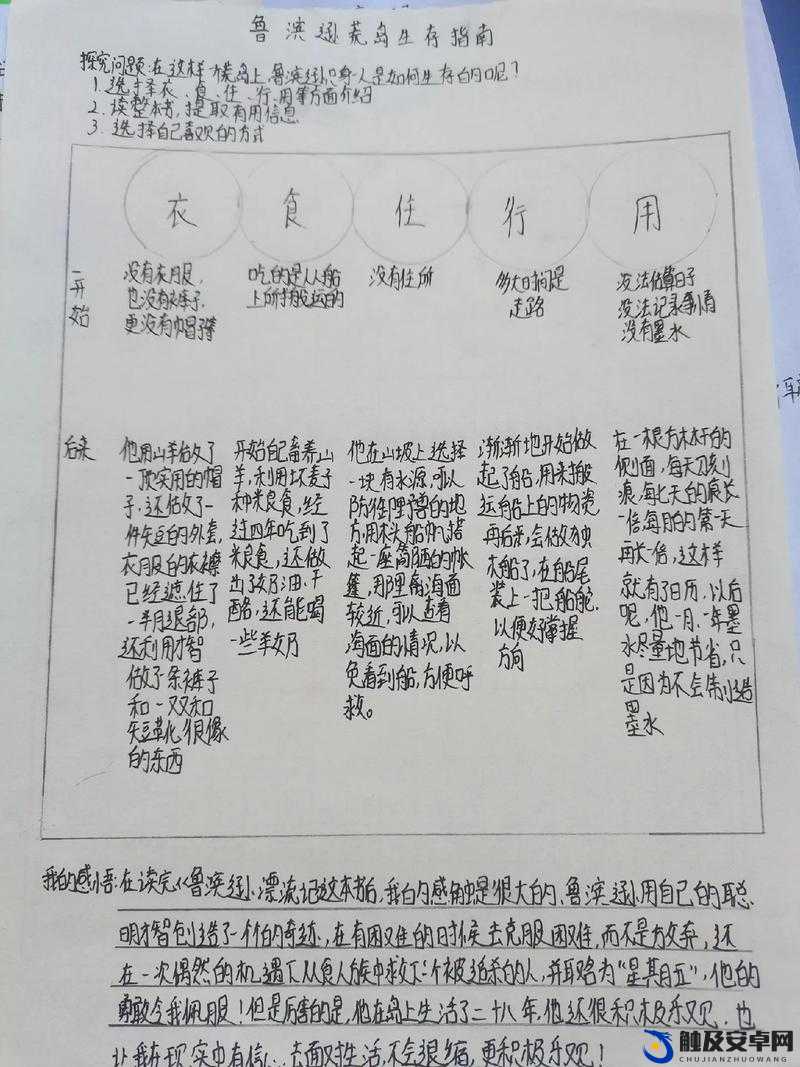 鲁滨逊荒岛生存指南
探究问题:在这样
荒岛上,鲁滨逊只身一人是如何生存的呢?
1. 选择衣、食、住、行、用等方面介绍
2. 读整本书,提取有用信息
3. 选择自己喜欢的方式
衣
食
住
行
用
开始
没有衣服,
也没有裤子,
更没有帽子
吃的是从船
上所搬运的
没有住所
多大时间是
走路
没法估算日子
没法记录事情
没有墨水
后来
他用山羊做了
一顶实用的帽
子,还做了一
件短的外套,
衣服的衣襟
已经遮住了
一半腿部,
还利用才智
做了条裤子
和一双和
短靴很像
的东西
开始自己畜养山
羊,利用坏麦子
种米良食,经
过四年吃到了
米良食,还做
出了奶油、干
酪,还能喝
一些羊奶
他在山坡上选择
一块有水源,可以
防御野兽的地
方,用木头船帆搭
起一座简陋的帐
篷,用
离海面
较近,可以看着
海面的情况,以
免看到船,方便呼
救。
渐渐地开始做
起了船,用来搬
运船上的物资
再后来,会做独
木船了,在船尾
装上一把船舵,
以便好掌握
方向
在一根方木杆的
侧面,每天刻刂
痕,每七天的痕长
一倍每月的第一天
再长一倍,这样
就有了日历,以后
呢,他一月、一年墨
水尽量地节省,只
是因为不会制造
墨水
我的感悟:在读完《鲁滨逊漂流记》这本书后,我的感触是很大的,鲁滨逊用自己的聪
明才智创造了一个个的奇迹,在有困难的时候去克服困难,而不是放弃,还
在一次偶然的机遇下从食人族中救下一个被追杀的人,并取名为“星期五”,他的
勇敢令我佩服!但是厉害的是,他在岛上生活了二十八年,他还很积极乐观,也
让我在现实中有信心去面对生活,不会退缩,更积极乐观!
触及安卓网
CHUJIANZHUOWANG